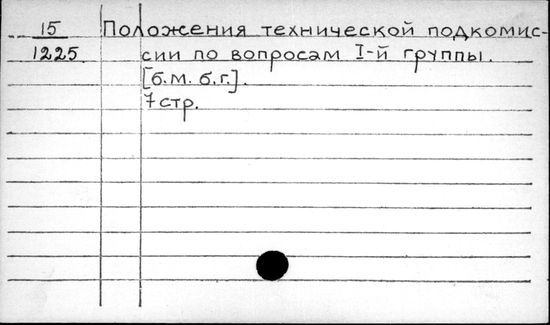 15 Положения технической подкомис-
1225. сии по вопросам I-й группы.
[б.м. б.г.].
7 стр.